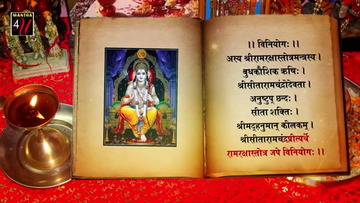 MANTRA
4
।। विनियोगः ।।
अस्य श्रीरामरक्षास्तोत्रमन्त्रस्य ।
बुधकौशिक ऋषिः ।
श्रीसीतारामचंद्रोदेवता
अनुष्टुप् छन्दः ।
सीता शक्तिः ।
श्रीमद्हनुमान् कीलकम् ।
श्रीसीतारामचंद्रप्रीत्यर्थे
रामरक्षास्तोत्र जपे विनियोगः ।।